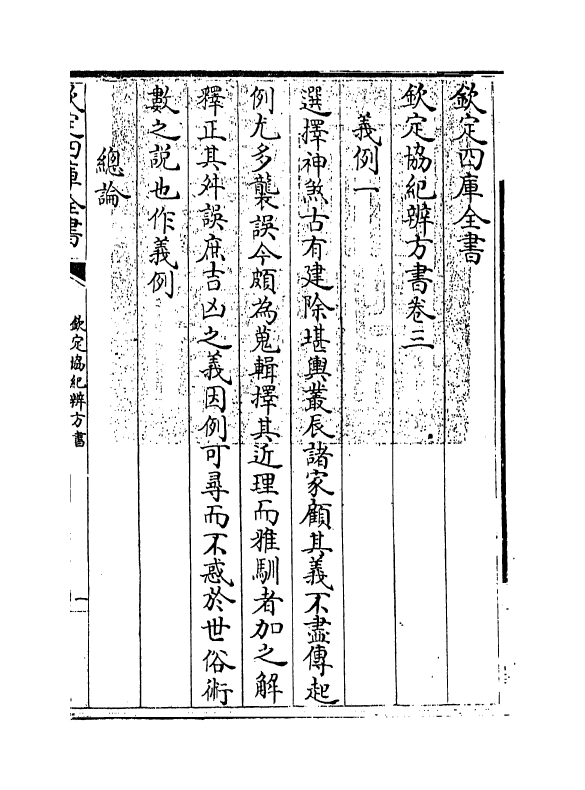 欽定四庫全書
欽定協紀辨方書卷三
義例一
選擇神煞古有建除堪輿叢辰諸家顧其義不盡傳起
例尤多襲誤今頗為蒐輯擇其近理而雅馴者加之解
釋正其舛誤庶吉凶之義因例可尋而不惑於世俗術
數之説也作義例
總論
欽定四庫全書
欽定協紀辨方書
一